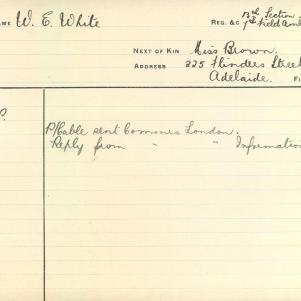 AME W. E. White
REG. &C 13th Section
7th Field Amb
NEXT OF KIN Miss Brown.
ADDRESS 225 Flinders Street
Adelaide. FI
P/Cable sent Commrs London.
Reply from " " Information